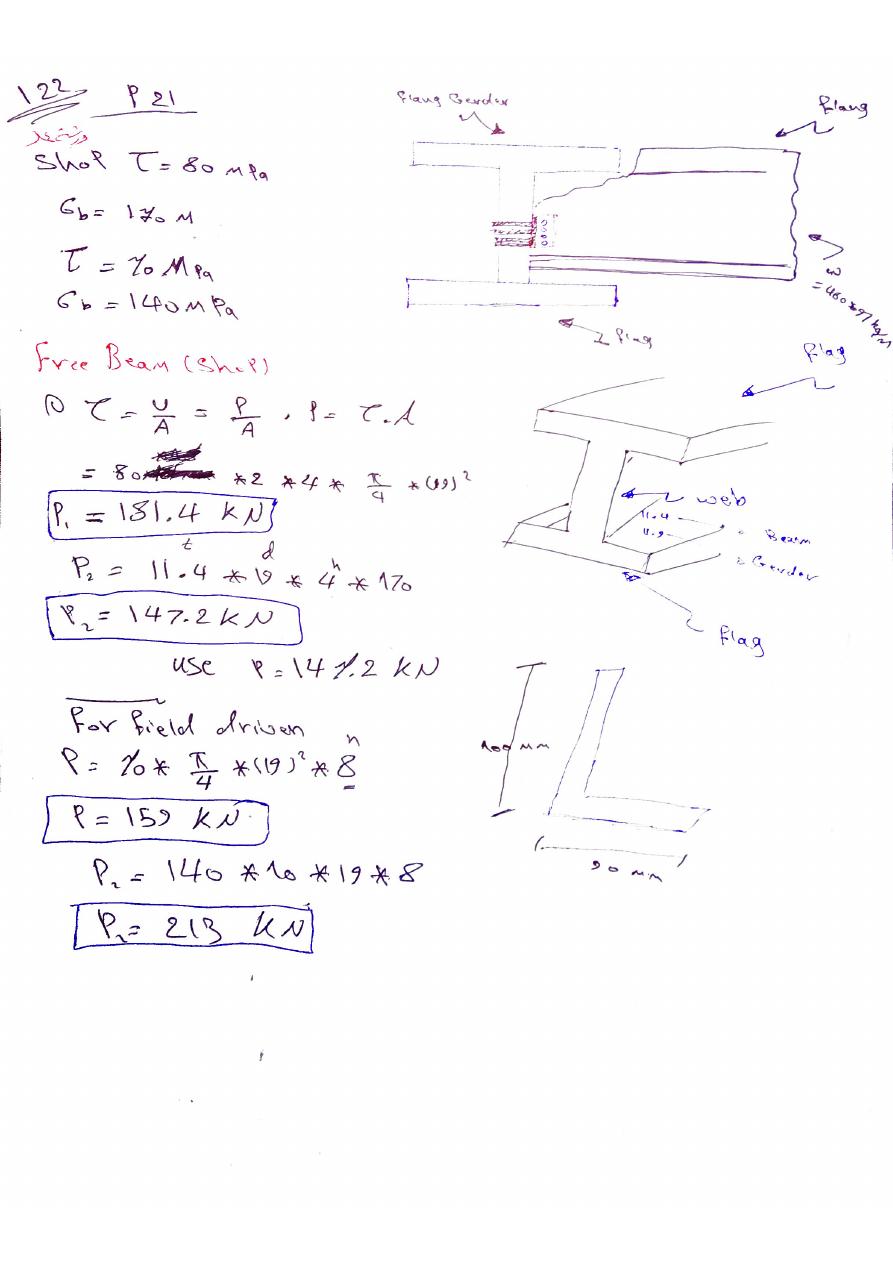 122 P 21
Shop τ = 80 MPa
σb = 170 M
τ = 70 MPa
σb = 140 MPa
Free Beam (Shop)
① τ = U/A = P/A , P = τ.A
= 80 *2 *4 * π/4 *(19)²
P₁ = 181.4 KN
t d n
P₂ = 11.4 * 19 * 4 * 170
P₂ = 147.2 KN
use P = 147.2 KN
For field driven
n
P = 70 * π/4 *(19)² * 8
P = 159 KN
P₂ = 140 *10 *19 *8
P₂ = 213 KN
Flang Gerder
Flang
w
= 460*97 kg/m
Flag
Flag
web
11.4
11.9
Beam
Gerder
Flag
100 mm
90 mm